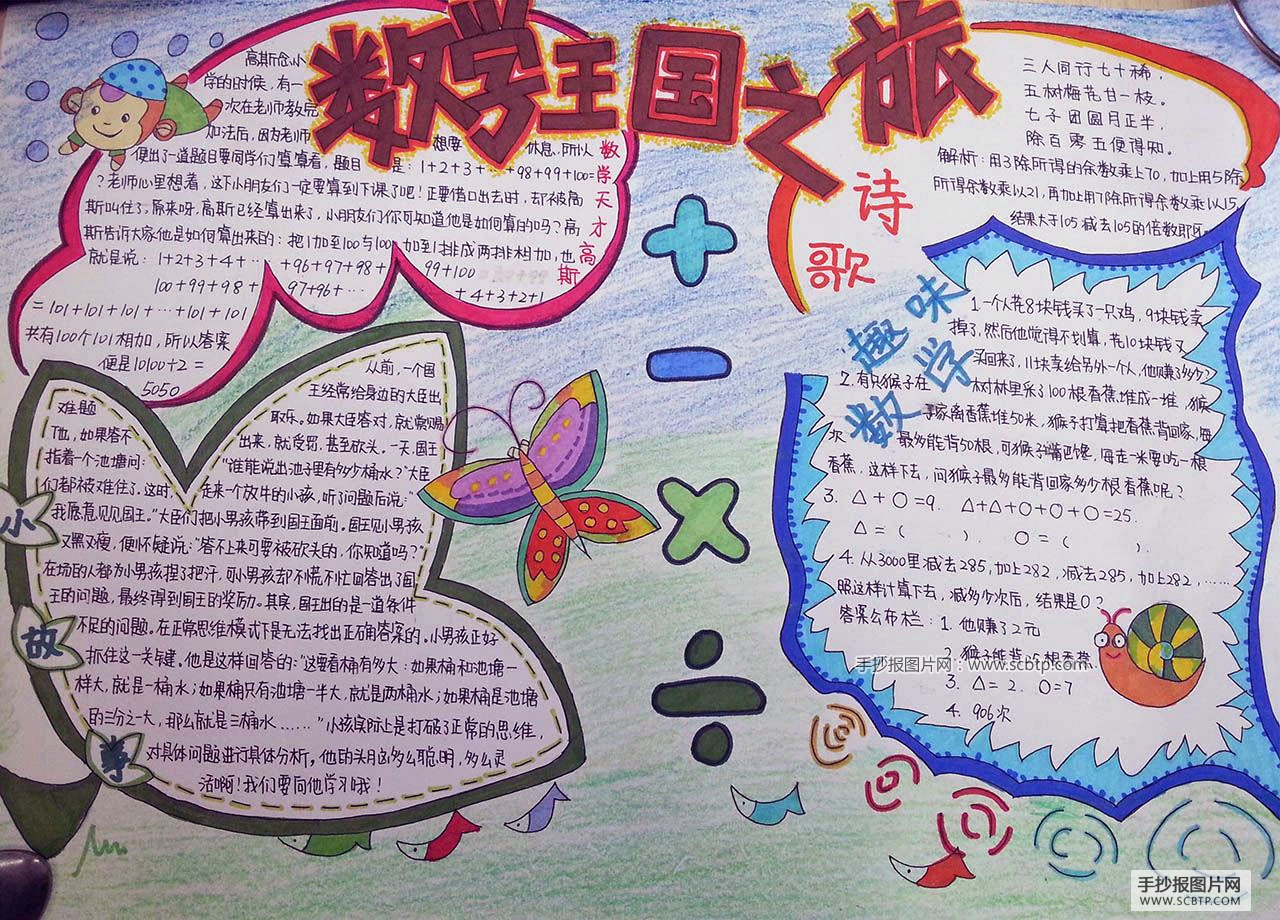 数学王国之旅
高斯念小
学的时候,有一
次在老师教完
加法后,因为老师
想要 休息,所以
便出了道题目要同学们算算看,题目 是:1+2+3+ …98+99+100=
?老师心里想着,这下小朋友们一定要算到下课了吧!正要借口出去时,却被高
斯叫住了,原来呀,高斯已经算出来了,小朋友们你可知道他是如何算的吗?高
斯告诉大家他是如何算出来的:把1加至100与100加到1排成两排相加,也
就是说:1+2+3+4+… +96+97+98+ 99+100
100+99+98+ 97+96+… +4+3+2+1
=101+101+101+…+101+101
共有100个101相加,所以答案
便是10100÷2=
5050
数学天才高斯
三人同行七十稀,
五树梅花廿一枝。
七子团圆月正半,
除百零五便得知。
解析:用3除所得的余数乘上70,加上用5除
所得余数乘以21,再加上用7除所得余数乘以15
结果大于105减去105的倍数即
诗歌
小故事
从前,一个国
王经常给身边的大臣出
难题
取乐。如果大臣答对,就赏赐
他,如果答不
出来,就受罚,甚至砍头。一天,国王
指着一个池塘问:
“谁能说出池子里有多少桶水?”大臣
们都被难住了。这时, 走来一个放牛的小孩,听了问题后说:“
我愿意见见国王。”大臣们把小男孩带到国王面前。国王见小男孩
又黑又瘦,便怀疑说:“答不上来可要被砍头的,你知道吗?”
在场的人都为小男孩捏了把汗,可小男孩却不慌不忙回答出了国
王的问题,最终得到国王的奖励。其实,国王出的是一道条件
不足的问题。在正常思维模式下是无法找出正确答案的。小男孩正好
抓住这一关键。他是这样回答的:“这要看桶有多大:如果桶和池塘一
样大,就是一桶水;如果桶只有池塘一半大,就是两桶水;如果桶是池塘
的三分之一大,那么就是三桶水……”小孩实际上是打破了正常的思维,
对具体问题进行具体分析。他的头脑多么聪明,多么灵
活啊!我们要向他学习哦!
趣味数学
1.一个人花8块钱买了一只鸡,9块钱卖
掉了,然后他觉得不划算,花10块钱又
买回来了,11块卖给另外一个人,他赚了多少?
2.有只猴子在 树林里采了100根香蕉堆成一堆,猴
子家离香蕉堆50米,猴子打算把香蕉背回家,每
次 最多能背50根,可猴子嘴巴馋,每走一米要吃一根
香蕉,这样下去,问猴子最多能背回家多少根香蕉呢?
3. △+○=9. △+△+○+○+○=25.
△=( ). ○=( ).
4.从3000里减去285,加上282,减去285,加上282,……
照这样计算下去,减多少次后,结果是0?
答案公布栏:1.他赚了2元
2.猴子能背 根香蕉
3. △=2. ○=7
4. 906次
手抄报图片网:www.scbtp.com
手抄报图片网
WWW.SCBTP.COM